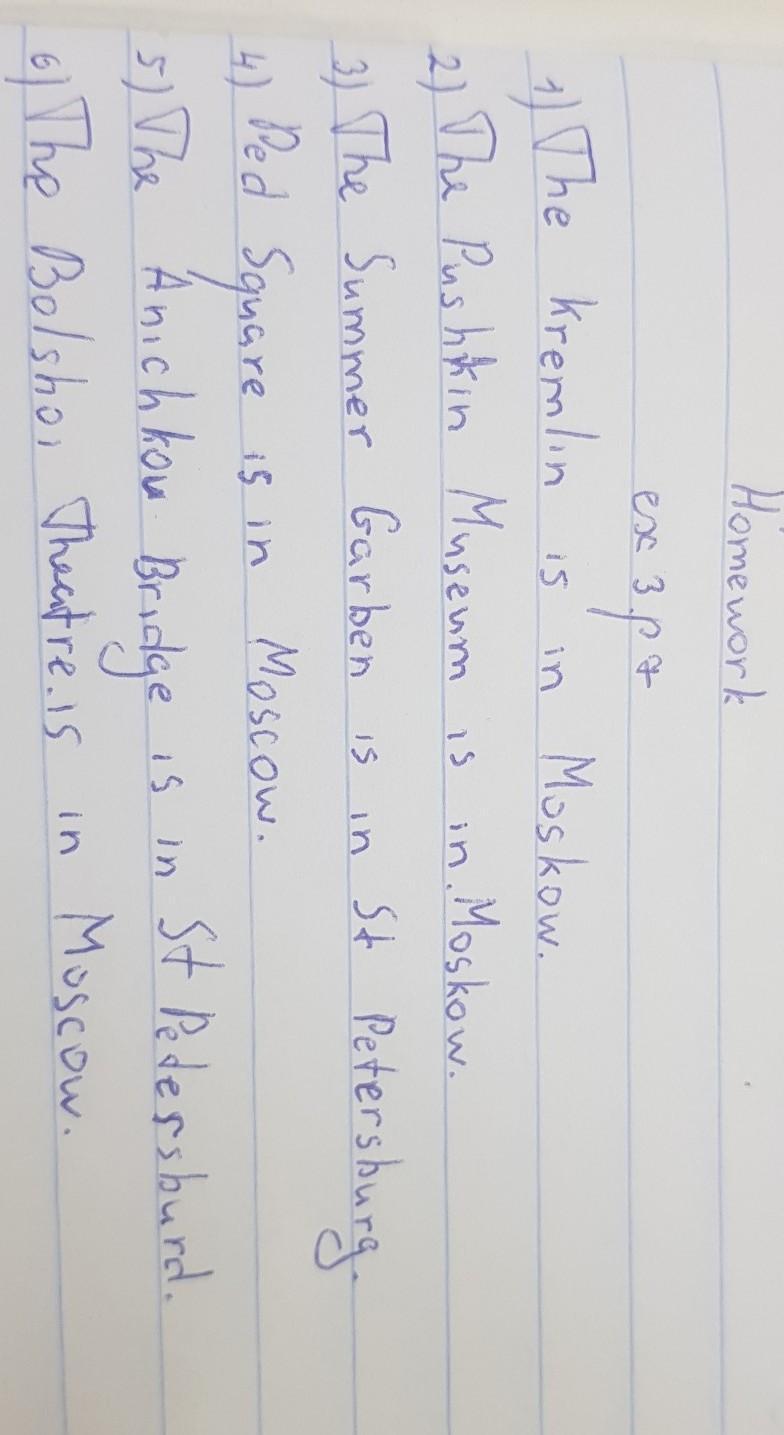 Homework
ex 3 p 7
1) The Kremlin is in Moskow.
2) The Pushkin Museum is in Moskow.
3) The Summer Garben is in St Petersburg.
4) Ped Square is in Moscow.
5) The Anichkov Bridge is in St Pedersburd.
6) The Bolshoi Theatre is in Moscow.